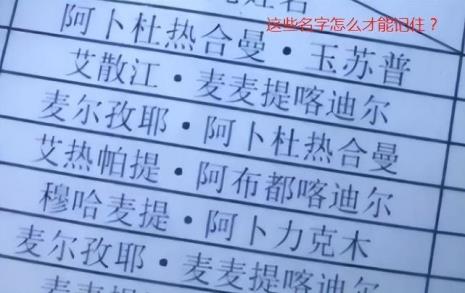 姓名
这些名字怎么才能记住？
阿卜杜热合曼·玉苏普
艾散江·麦麦提喀迪尔
麦尔孜耶·阿卜杜热合曼
艾热帕提·阿布都喀迪尔
穆哈麦提·阿卜力克木
麦尔孜耶·麦麦提喀迪尔